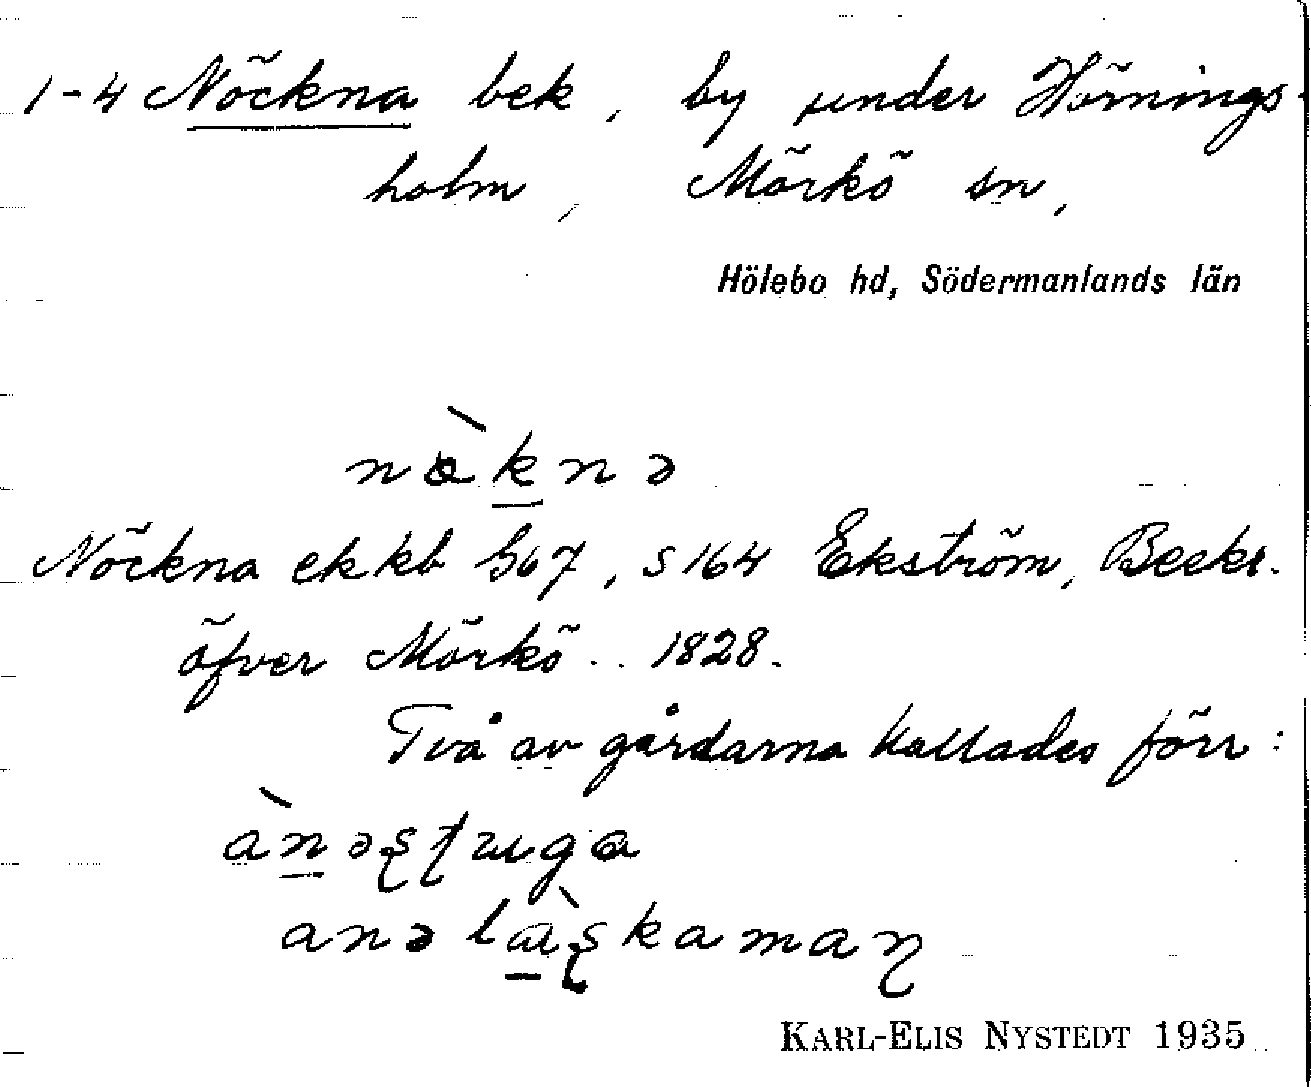 1-4 Nöckna bek, by under Hörnings-
holm, Mörkö sn,
Hölebo hd, Södermanlands län
nòknə
Nöckna ekkb S67, s 164 Ekström, Beskr.
öfver Mörkö .. 1828.
Två av gårdarna kallades förr:
KARL-ELIS NYSTEDT 1935